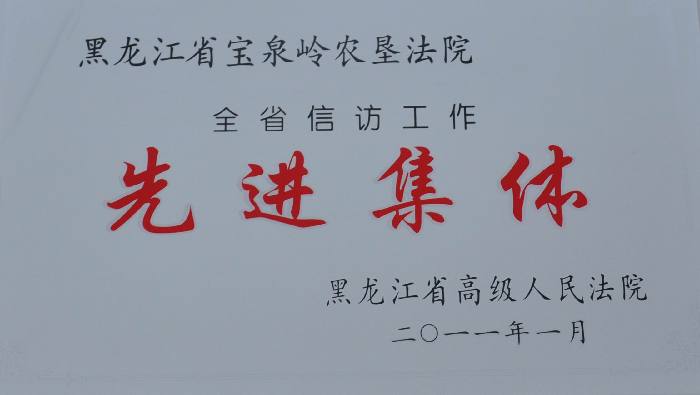 黑龙江省宝泉岭农垦法院
全省信访工作
先进集体
黑龙江省高级人民法院
二〇一一年一月